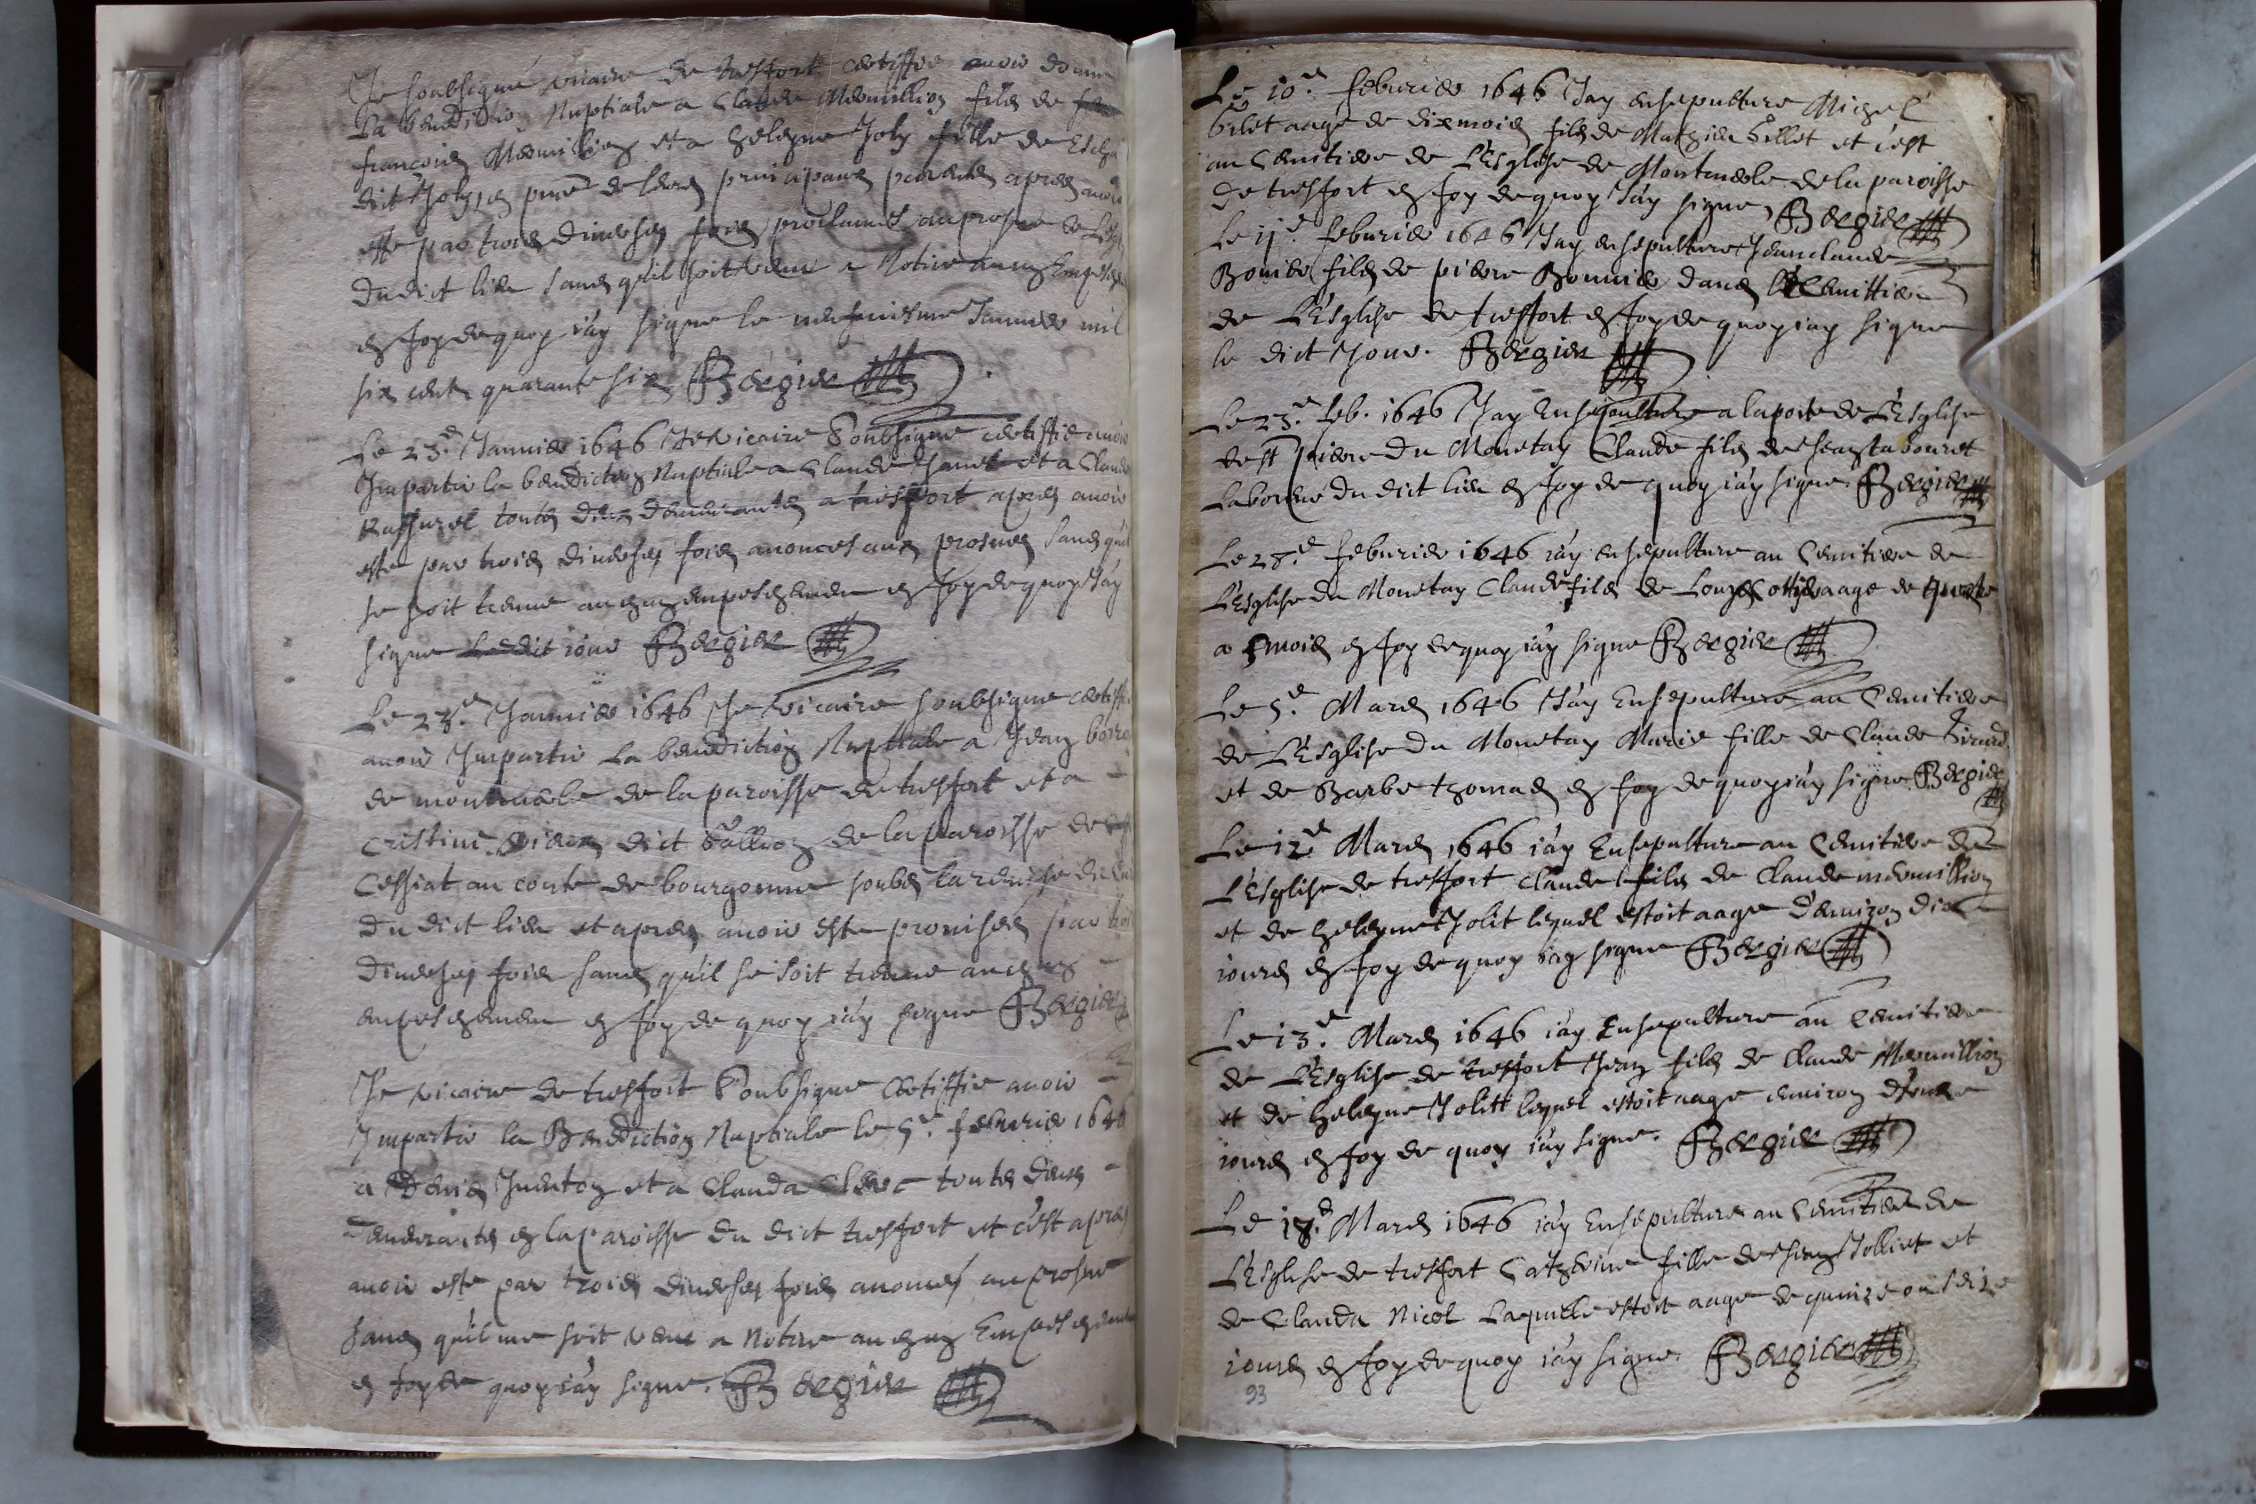 Je soubsigné vicaire de tresfort certiffie avoir donne
La benediction Nuptiale a Claude Mermillion fils de feu
francois Mermillion et a helenne Joly fille de
dict Joly, en pnce de leurs principaux parents apres avoir
este par trois diverses fois proclamés au prosne de
du dict lieu sans qu'il soit venu a Notice aucun
en foy de quoy i'ay signe le Januier mil
six cent quarante six Bergier
Le 23.e Januier 1646 Je vicaire soubsigne certiffie avoir
Impartie la benediction Nuptiale a Claude Janet et a Claude
touts deux demeurants a tresfort apres avoir
este par trois diverses fois anoncés aux prosnes sans quil
se soit treuve aucun empeschement en foy de quoy J'ay
signe Ledit iour Bergier
Le 28.e Januier 1646 Je vicaire soubsigne certiffie
avoir Impartie La benediction Nuptiale a Jean
de montmerle de la paroisse de tresfort et a
Cristine dict de la paroisse de
Cessiat au conte de bourgonne soubs la remise du
du dict lieu et apres avoir este promises par trois
diverses fois sans qu'il se soit treuve aucun
empeschement en foy de quoy i'ay signe Bergier
Je vicaire de tresfort soubsigne Certiffie avoir
Impartie la Benediction Nuptiale le 5.e feburier 1646
a Denis et a Clauda Clerc touts deux
demeurants en la paroisse du dict tresfort et c'est apres
avoir este par trois diverses fois anonces au prosne
sans qu'il me soit venu a Notice aucun Empeschement
en foy de quoy i'ay signe. Bergier
Le 10.e feburier 1646 J'ay ensepulture Michel
Gilet aage de dix mois fils de Mathieu Gillet et c'est
au Cemitiere de L'Esglise de Montmerle de la paroisse
de tresfort en foy de quoy J'ay signe, Bergier
Le 11.e feburier 1646 J'ay ensepulture Jean claude
Bonier fils de pierre Bonnier dans le Cemittiere
de L'Esglise de tresfort en foy de quoy i'ay signe
le dict Jour. Bergier
Le 23.e feb. 1646 J'ay Ensepulture a la porte de L'Esglise
de st pierre du Monetay Claude fils de Jean tabouret
Laboureur du dict lieu en foy de quoy i'ay signe. Bergier
Le 28.e feburier 1646 i'ay ensepulture au Cemitiere de
L'Esglise du Monetay Claude fils de Louys aage de quatre
a 5 mois en foy de quoy i'ay signe Bergier
Le 5.e Mars 1646 J'ay Ensepulture au Cemitiere
de L'Esglise du Monetay Marie fille de Claude Girard
et de Barbe thomas en foy de quoy i'ay signe Bergier
Le 12.e Mars 1646 i'ay Ensepulture au Cemitiere de
L'Esglise de tresfort Claude fils de Claude mermillion
et de helenne Jolit lequel estoit aage d'environ dix
iours en foy de quoy i'ay signe Bergier
Le 13.e Mars 1646 i'ay Ensepulture au Cemitiere
de L'Esglise de tresfort Jean fils de Claude Mermillion
et de helenne Jolitt lequel estoit aage environ d'onze
iours en foy de quoy i'ay signe. Bergier
Le 18.e Mars 1646 i'ay Ensepulture au Cemitiere de
L'Esglise de tresfort Catherine fille de Jean Jolliet et
de Clauda Nicol Laquelle estoit aage de quinze ou seize
iours en foy de quoy i'ay signe. Bergier
93